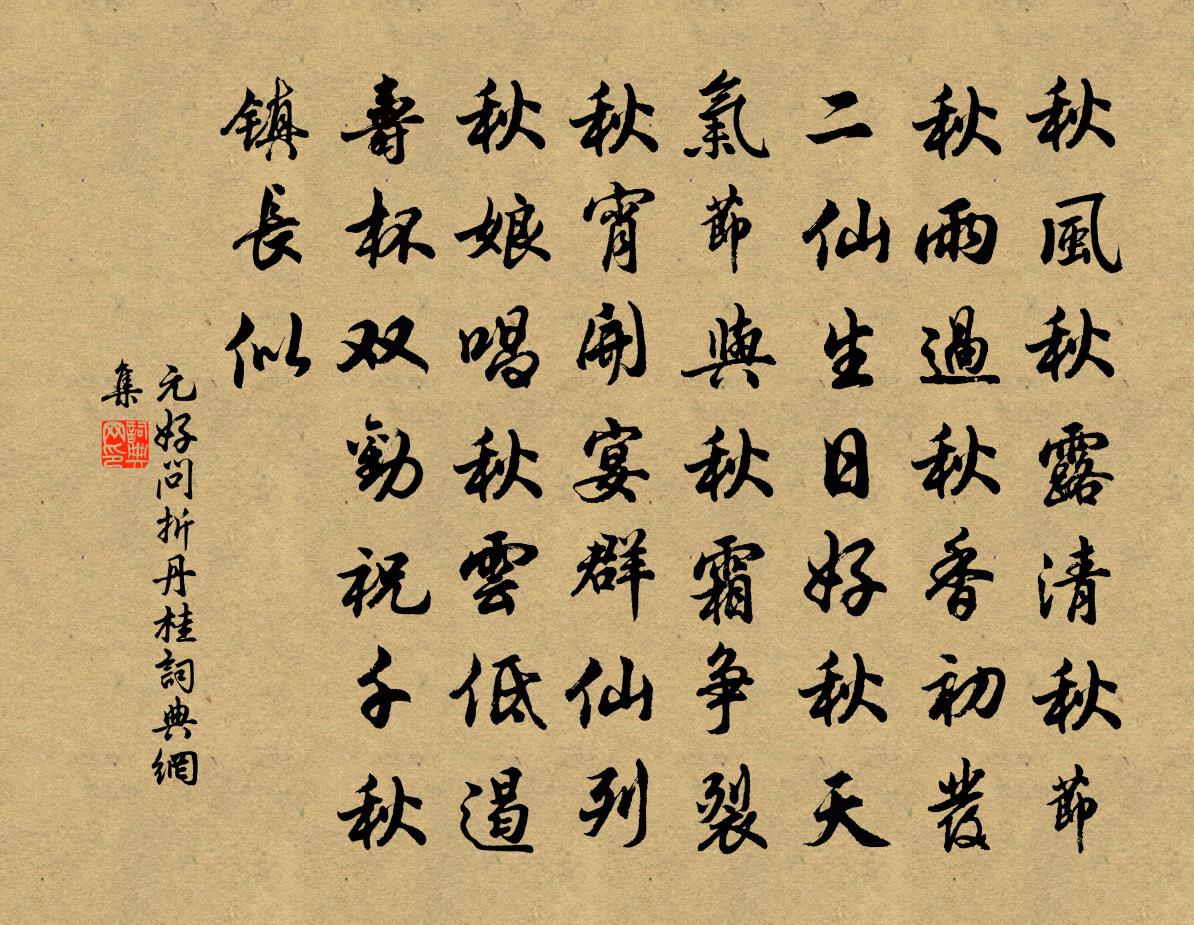 秋風秋露清秋節
秋雨過秋香初發
二仙生日好秋天
氣節與秋霜爭裂
秋宵開宴群仙列
秋娘唱秋雲低遏
壽杯双勸祝千秋
鎮長似
元好问折丹桂詞典網
集
詞典网印